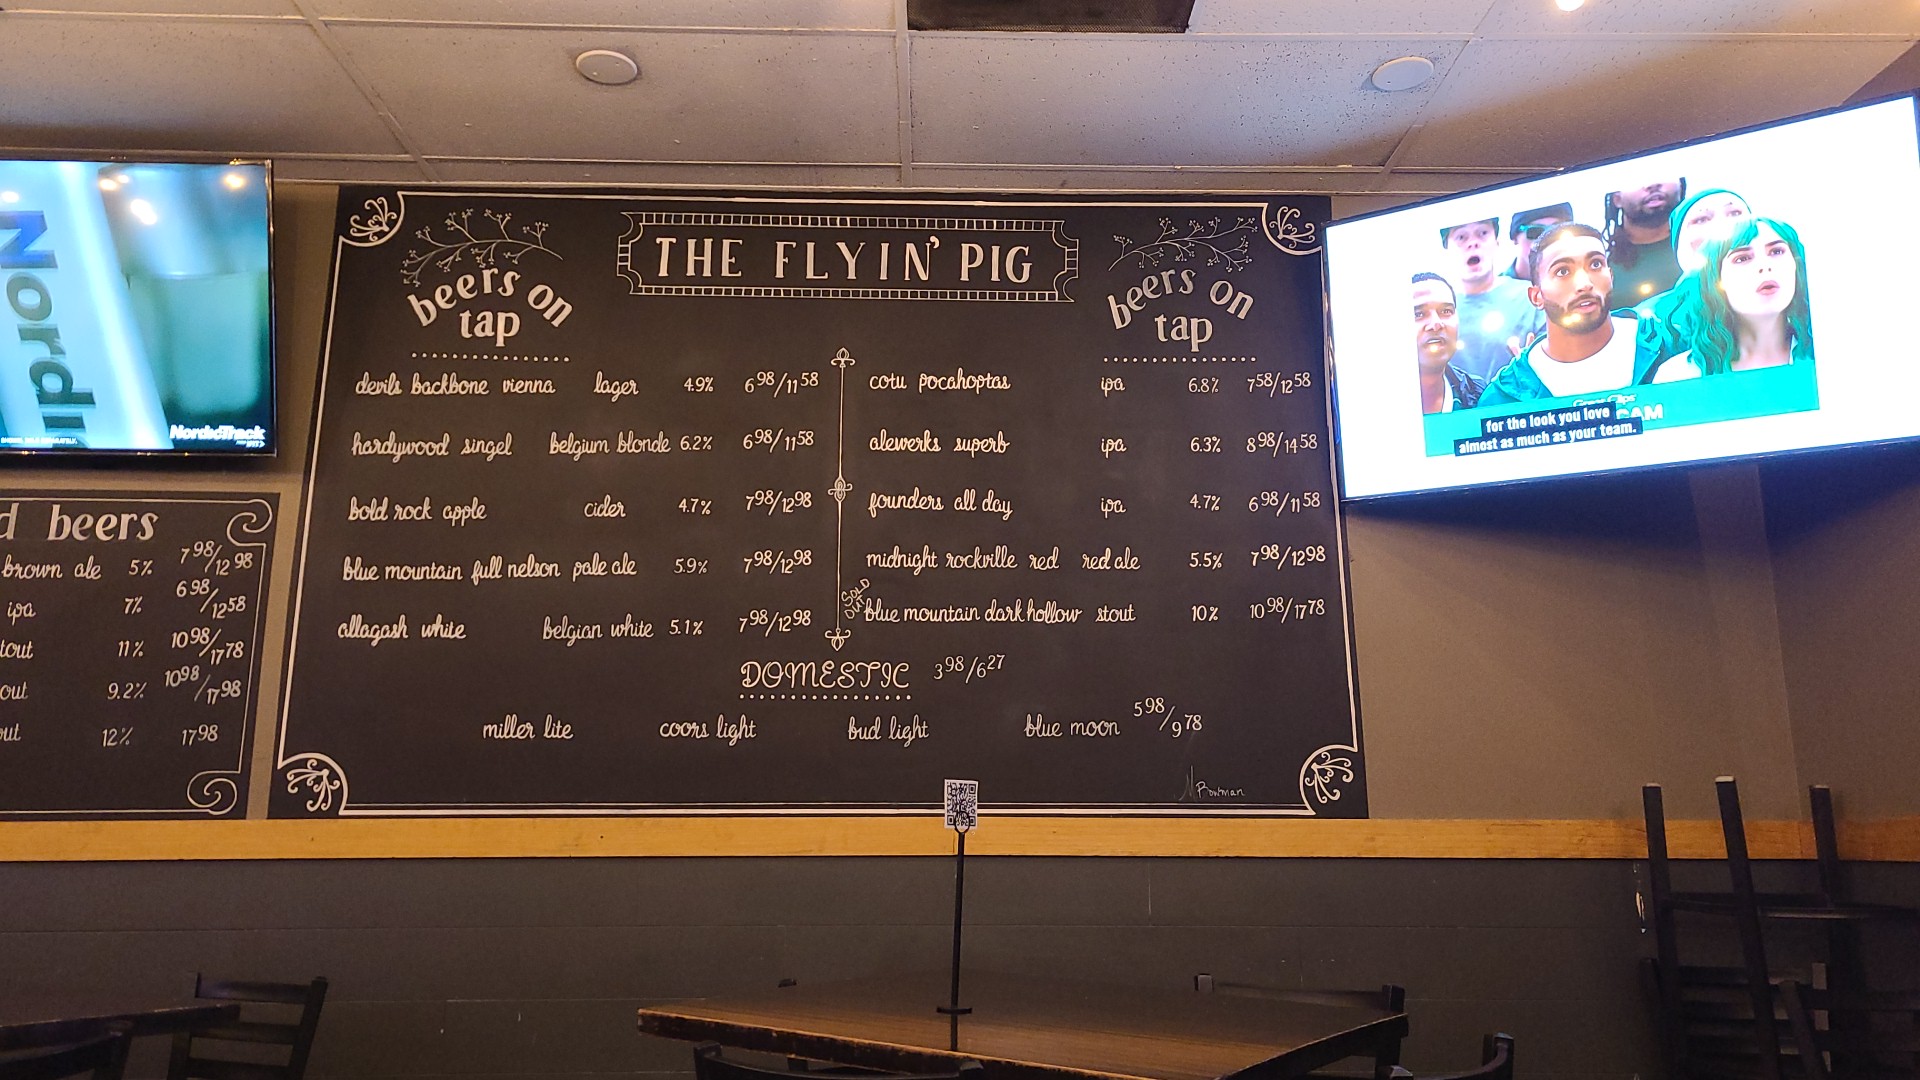 THE FLYIN' PIG
beers on
tap
devils backbone vienna lager 4.9% 6 98/11 58
hardywood singel belgium blonde 6.2% 6 98/11 58
bold rock apple cider 4.7% 7 98/12 98
blue mountain full nelson pale ale 5.9% 7 98/12 98
allagash white belgian white 5.1% 7 98/12 98
beers on
tap
cotu pocahoptas ipa 6.8% 7 58/12 58
alewerks superb ipa 6.3% 8 98/14 58
founders all day ipa 4.7% 6 98/11 58
midnight rockville red red ale 5.5% 7 98/12 98
SOLD
OUT
blue mountain dark hollow stout 10% 10 98/17 78
DOMESTIC 3 98/6 27
miller lite coors light bud light blue moon 5 98/9 78
M Bowman
d beers
brown ale 5% 7 98/12 98
ipa 7% 6 98/12 58
tout 11% 10 98/17 78
out 9.2% 10 98/17 98
out 12% 17 98
Nordi
NordicTrack
Great Clips
CAM
for the look you love
almost as much as your team.